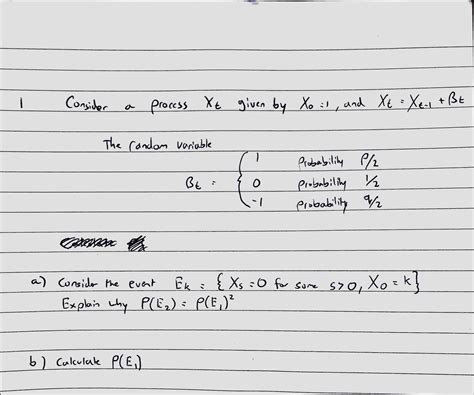 1 Consider a process Xt given by X0 = 1, and Xt = Xt-1 + Bt
The random variable
Bt = { 1 Probability P/2
0 Probability 1/2
-1 Probability q/2
a) Consider the event Ek = { Xs = 0 for some s>0, X0 = k }
Explain why P(E2) = P(E1)²
b) Calculate P(E1)